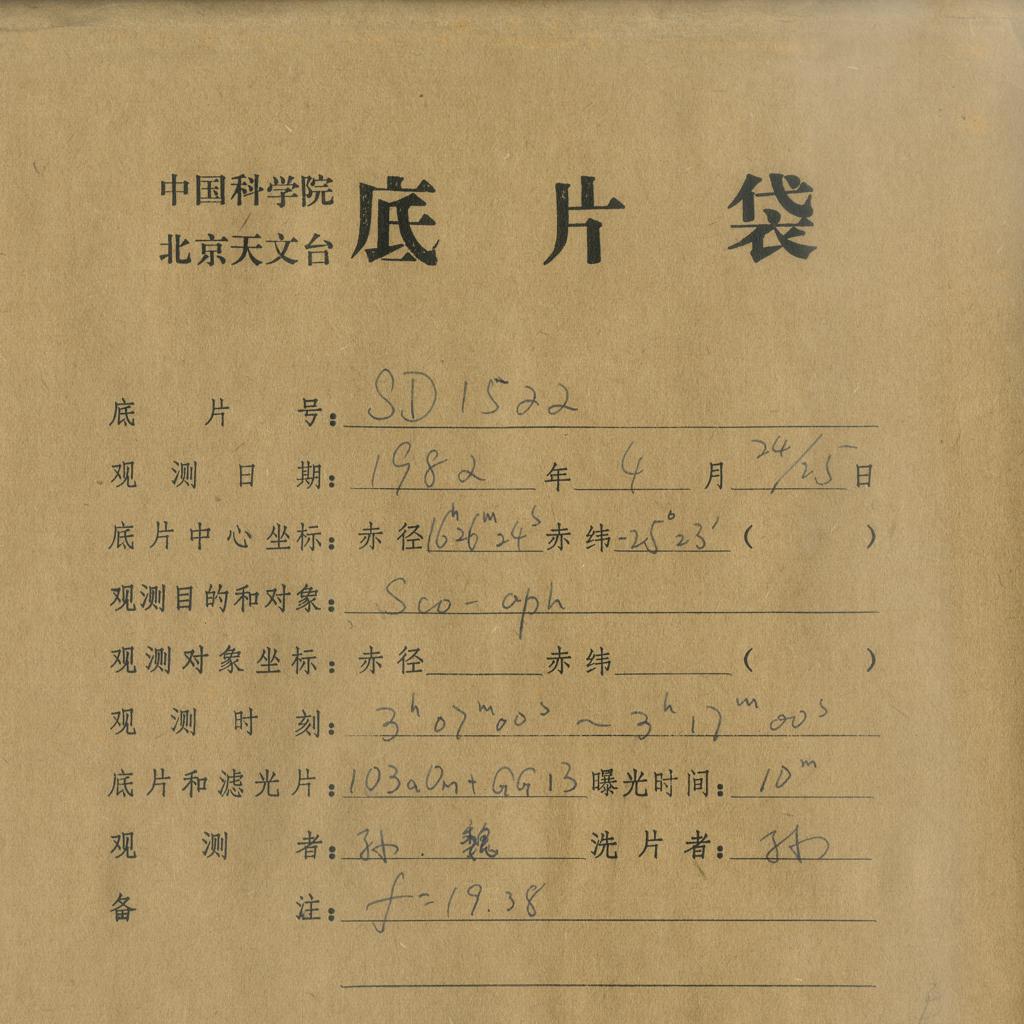 中国科学院
北京天文台
底片袋
底片号：SD1522
观测日期：1982年4月24/25日
底片中心坐标：赤径16h26m24s赤纬-25°23′（ ）
观测目的和对象：Sco-oph
观测对象坐标：赤径 赤纬 （ ）
观测时刻：3h07m00s～3h17m00s
底片和滤光片：103aOm+GG13 曝光时间：10m
观测者：孙.魏 洗片者：孙
备注：f=19.38